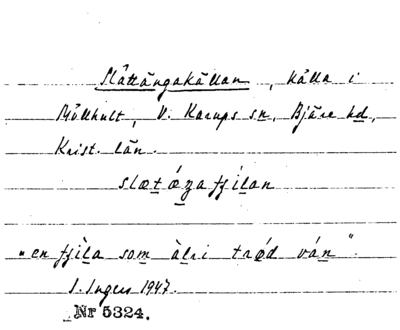 Slättängakällan, källa i
Böllhult, V. Karups sn, Bjäre hd,
Krist. län.
slætǿŋafʃilan
"en fʃìla som àlri trǿd ván".
S. Ingers 1947.
Nr 5324.